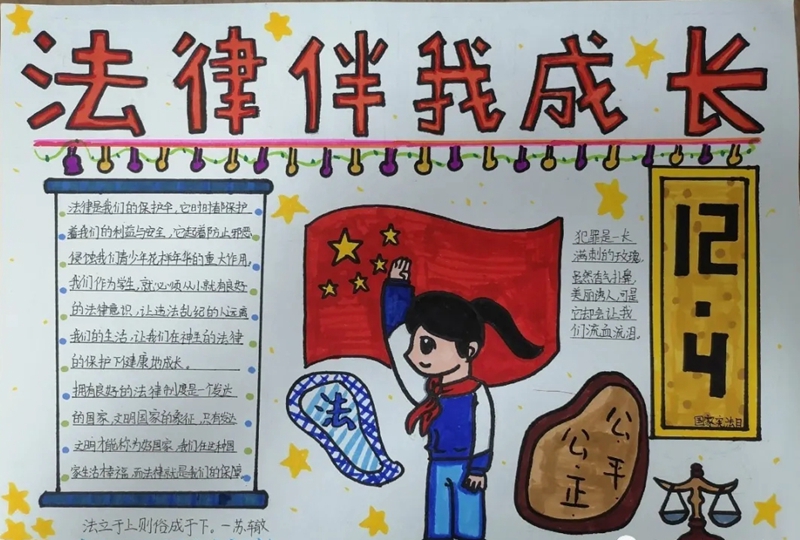 法律伴我成长
法律是我们的保护伞,它时时都保护
着我们的利益与安全,它起着防止邪恶
侵蚀我们青少年花样年华的重大作用,
我们作为学生,就必须从小就有良好
的法律意识,让违法乱纪的人远离
我们的生活,让我们在神圣的法律
的保护下健康地成长。
拥有良好的法律制度是一个发达
的国家,文明国家的象征,只有发达
文明才能称为好国家,我们在这种国
家生活才幸福,而法律就是我们的保障
法立于上则俗成于下。一苏辙
法
犯罪是一长
满刺的玫瑰,
虽然香气扑鼻,
美丽诱人,可是
它却会让我
们流血流泪。
公平
公正
12.4
国家宪法日